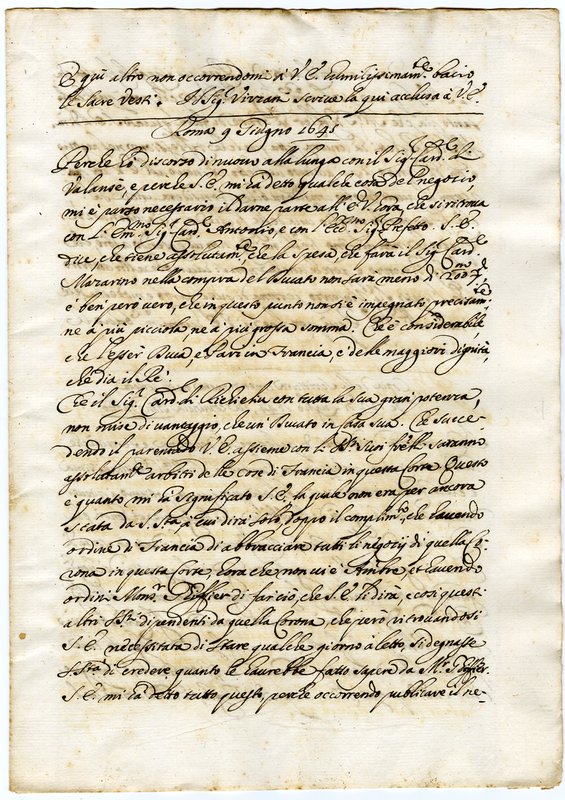 E qui altro non occorrendomi à V. E. humilissimam.te bacio
le Sacre Vesti. Il Sig.r Vivzani scrive la qui acclusa à V. E.
Roma 9 Giugno 1645
Perche hò discorso di nuovo alla lunga con il Sig.r Card.le di
Valansè, e perche S. E. mi hà detto qualche cosa del negozio,
mi è parso necessario il darne parte all' E. V. hora, che si ritrova
con l'Em.mo Sig.r Card.le Antonio, e con l'Ecc.mo Sig.r Prefetto. S. E.
dice, che tiene assolutam.te che la spesa, che farà il Sig.r Card.le
Mazarino nella compra del Ducato non sarà meno di 200
è ben però vero, che in questo punto non si è impegnato precisam.te
ne à più picciola, ne à più grossa somma. Che è considerabile,
che l'esser Duca, e Pari in Francia, è delle maggiori dignità,
che dia il Rè.
Che il Sig.r Card.le di Richelieu con tutta la sua gran potenza,
non mise di vantaggio, che un Ducato in Casa sua. Che succe-
dendo il parentado V. E. assieme con li SS.ri suoi fr̃elli saranno
assolutam.te arbitri delle cose di Francia in questa Corte. Questo
è quanto mi hà significato S. E. la quale non era per ancora
stata da S. Stà, à cui dirà solo, doppo il complim.to, che havendo
ordine di Francia di abbracciare tutti li negozij di quella Co-
rona in questa Corte, hora che non vi è Amb.re, et havendo
ordini Mons.r di far ciò, che S. E. li dirà, e così questi
altri SS.ri dipendenti da quella Corona, che però ritrovandosi
S. E. necessitata di stare qualche giorno à letto, si degnasse
S. Stà di credere quanto le haurebbe fatto sapere da M.r
S. E. mi hà detto tutto questo perche occorrendo publicare il ne-